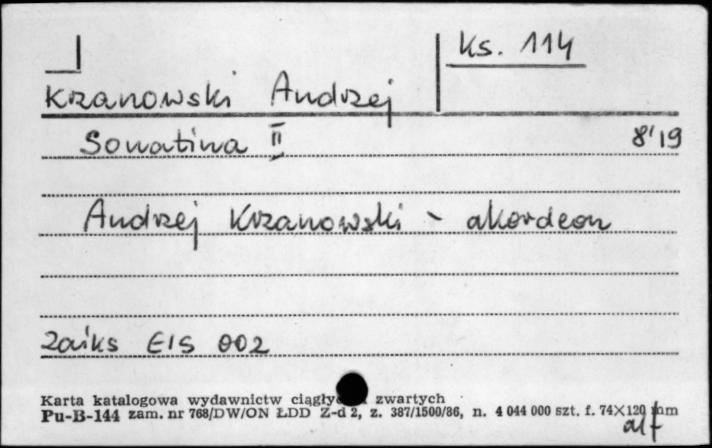 Ks. 114
Krzanowski Andrzej
Sonatina II 8'19
Andrzej Krzanowski - akordeon
Zaiks EIS 002
Karta katalogowa wydawnictw zwartych
Pu-B-144 zam. nr 768/DW/ON ŁDD Z-d 2, z. 387/1500/86, n. 4 044 000 szt. f. 74×120 mm
alt